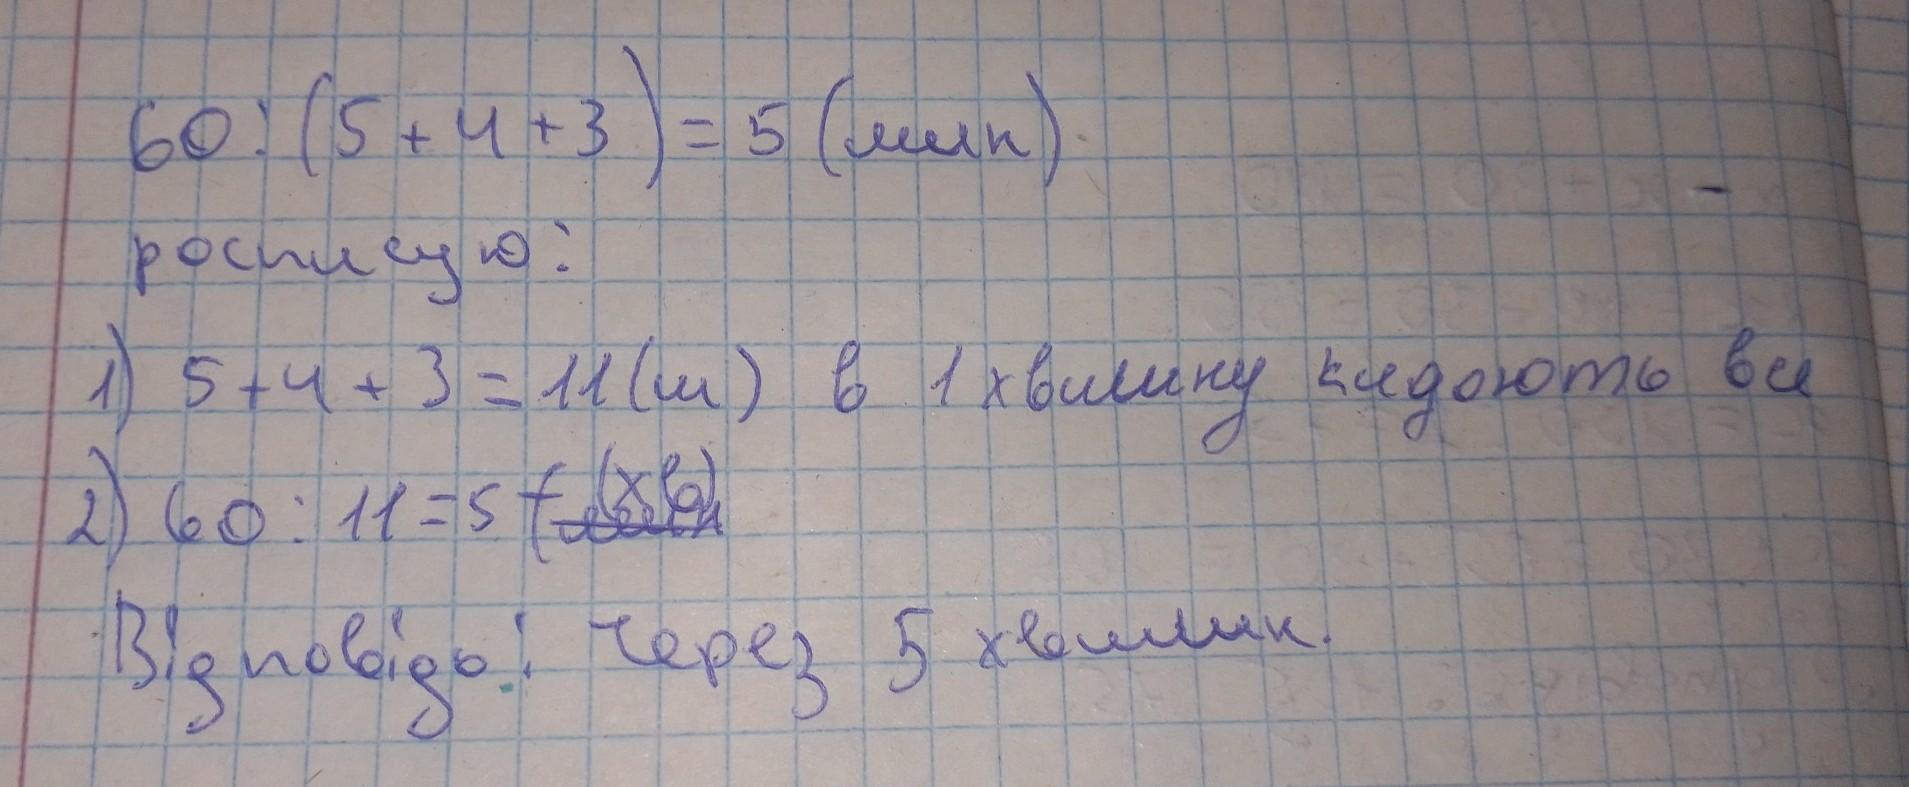 60:(5+4+3)=5(мин).
росписую:
1) 5+4+3=11(м) в 1 хвилину кидоють вси
2) 60:11=5 (хв)
Відповідь: через 5 хвилин.